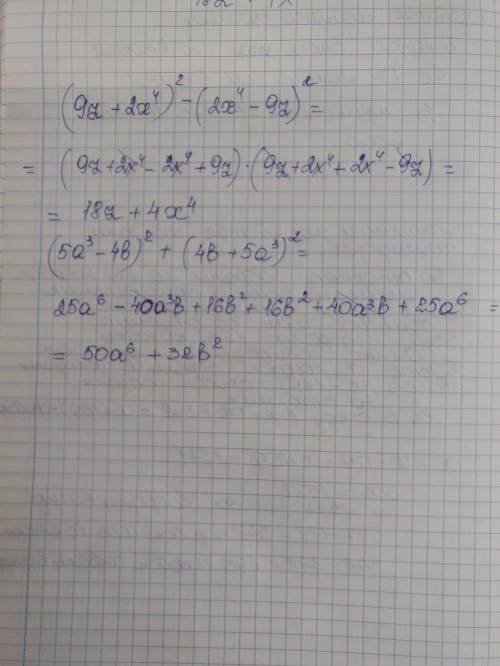 (9z + 2x⁴)² - (2x⁴ - 9z)² =
= (9z + 2x⁴ - 2x⁴ + 9z) · (9z + 2x⁴ + 2x⁴ - 9z) =
= 18z + 4x⁴
(5a³ - 4b)² + (4b + 5a³)² =
25a⁶ - 40a³b + 16b² + 16b² + 40a³b + 25a⁶ =
= 50a⁶ + 32b²